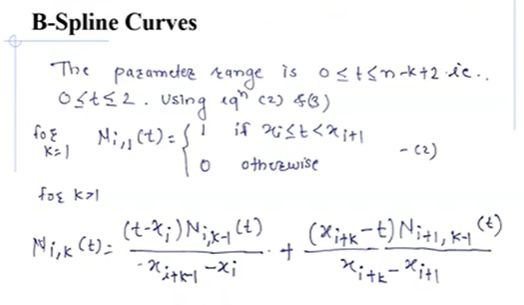 B-Spline Curves
The parameter range is 0 ≤ t ≤ n-k+2 ie..
0 ≤ t ≤ 2. Using eqⁿ (2) &(3)
for k=1 Nᵢ,₁(t) = { 1 if xᵢ ≤ t < xᵢ₊₁
0 otherwise - (2)
for k>1
Nᵢ,ₖ(t) = (t-xᵢ) Nᵢ,ₖ₋₁(t) / xᵢ₊ₖ₋₁ - xᵢ + (xᵢ₊ₖ - t) Nᵢ₊₁,ₖ₋₁(t) / xᵢ₊ₖ - xᵢ₊₁